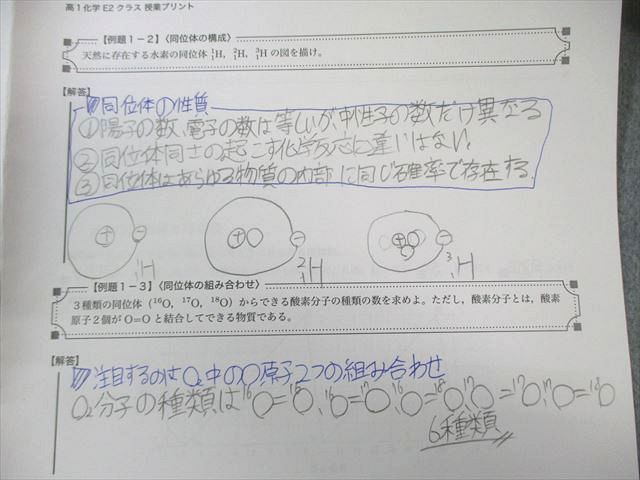 高1化学 E2 クラス 授業プリント
【例題1-2】〈同位体の構成〉
天然に存在する水素の同位体 ¹₁H, ²₁H, ³₁H の図を描け。
【解答】
同位体の性質
①陽子の数、電子の数は等しいが、中性子の数だけ異なる
②同位体同士の起こす化学反応に違いはない。
③同位体はあらゆる物質の内部に同じ確率で存在する。
+ - ¹₁H + - ²₁H + - ³₁H
【例題1-3】〈同位体の組み合わせ〉
3種類の同位体（¹⁶O, ¹⁷O, ¹⁸O）からできる酸素分子の種類の数を求めよ。ただし，酸素分子とは，酸素
原子2個が O=O と結合してできる物質である。
【解答】
注目するのは O₂中の O原子2つの組み合わせ
O₂分子の種類は
6種類